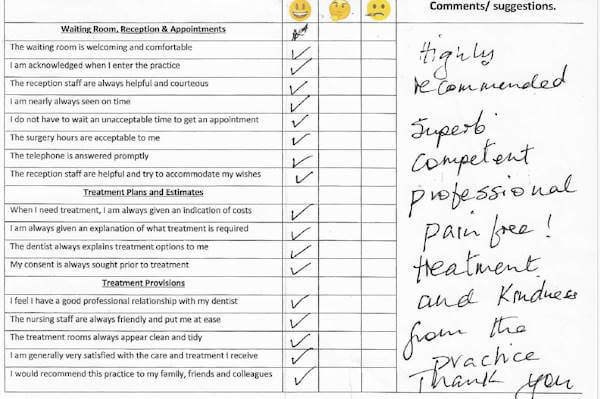 Comments/ suggestions.
Waiting Room, Reception & Appointments
The waiting room is welcoming and comfortable
I am acknowledged when I enter the practice
The reception staff are always helpful and courteous
I am nearly always seen on time
I do not have to wait an unacceptable time to get an appointment
The surgery hours are acceptable to me
The telephone is answered promptly
The reception staff are helpful and try to accommodate my wishes
Treatment Plans and Estimates
When I need treatment, I am always given an indication of costs
I am always given an explanation of what treatment is required
The dentist always explains treatment options to me
My consent is always sought prior to treatment
Treatment Provisions
I feel I have a good professional relationship with my dentist
The nursing staff are always friendly and put me at ease
The treatment rooms always appear clean and tidy
I am generally very satisfied with the care and treatment I receive
I would recommend this practice to my family, friends and colleagues
Highly
recommended
Superb
Competent
professional
pain free!
treatment
and Kindness
from the
practice
Thank you